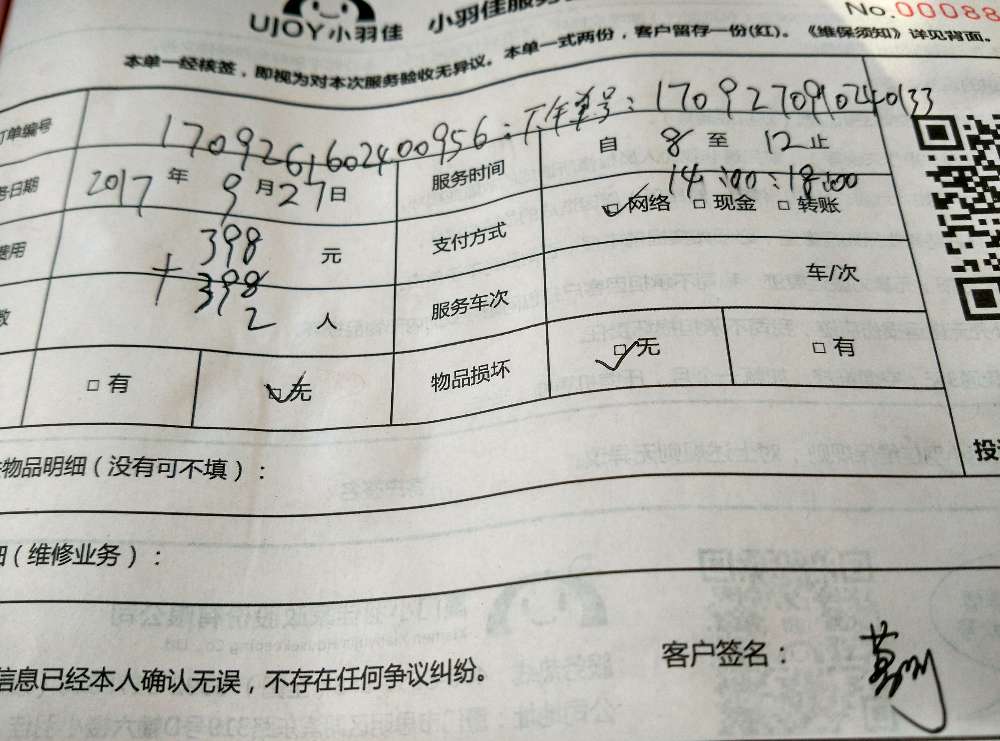 UJOY小羽佳 小羽佳服务
No.00088
本单一经核签，即视为对本次服务验收无异议。本单一式两份，客户留存一份(红)。《维保须知》详见背面。
订单编号 170926160240095​6：下午单号：1709270910240133
务日期 2017 年 9 月 27 日 服务时间 自 8 至 12 止
14:00:18:00
费用 398 元 支付方式 网络 □ 现金 □ 转账
+398
数 2 人 服务车次 车/次
□ 有 □ 无 物品损坏 □ 无 □ 有
物品明细（没有可不填）：
投
细（维修业务）：
信息已经本人确认无误，不存在任何争议纠纷。 客户签名：